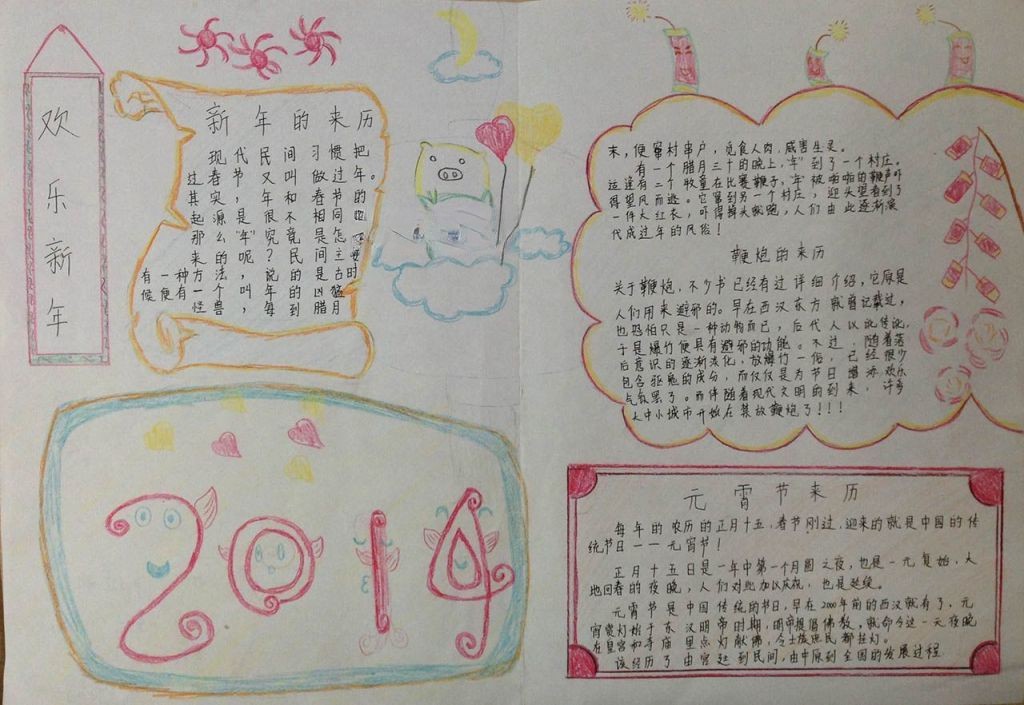 欢乐新年
新年的来历
现代民间习惯把
过春节又叫做过年。
其实,年和春节的
起源是很不相同的
那么"年"究竟是怎么
来的呢?民间主要
有一种方法,说的是古时
候便有一个叫年的凶猛
怪兽,每到腊月
末,便窜村串户,觅食人肉,威害生灵。
有一个腊月三十的晚上,"年"到了一个村庄。
运逢有二个牧童在比赛鞭子,"年"被啪啪的鞭声吓
得望风而逃。它窜到另一个村庄,迎头望看到了
一件大红衣,吓得掉头就跑,人们由此逐渐演
代成过年的风俗!
鞭炮的来历
关于鞭炮,不少书已经有过详细介绍,它原是
人们用来避邪的。早在西汉东方就曾记载过,
也恐怕只是一种动物而已,后代人以此传讹,
于是爆竹便具有避邪的功能。不过,随着落
后意识的逐渐淡化,放爆竹一俗,已经很少
包含驱鬼的成句,而仅仅是为节日增添欢乐
气氛罢了。而伴随着现代文明的到来,许多
大中小城市开始在禁放鞭炮了!!!
2014
元宵节来历
每年的农历的正月十五,春节刚过,迎来的就是中国的传
统节日一一元宵节!
正月十五日是一年中第一个月圆之夜,也是一元复始,大
地回春的夜晚,人们对此加以庆祝,也是延续。
元宵节是中国传统的节日,早在2000年前的西汉就有了,元
宵赏灯始于东汉明帝时期,明帝提倡佛教,就命今这一天夜晚
在皇宫和寺庙里点灯献佛,令士族庶民都挂灯。
该经历了由宫廷到民间,由中原到全国的发展过程